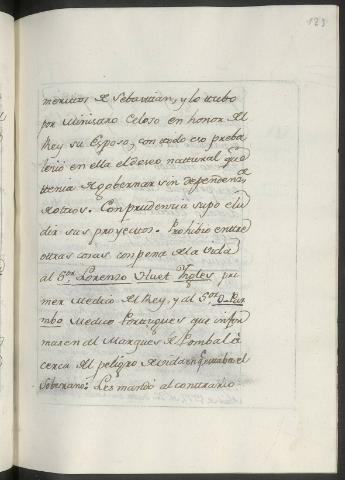 123
meritos de Sebastian, y lo tubo
por Ministro Celoso en honor del
Rey su Esposo, con todo eso preba
lecio en ella el deseo natural que
tenia de gobernar sin dependenª
de otros. Con prudencia supo elu
dir sus proyectos. Prohibio entre
otras cosas con pena de la vida
al Sor. Lorenzo Yngles, pri
mer Medico del Rey, y al Sor.
Medico Portugues que infor
maren al Marques de Pombal a
cerca del peligro de vida en qe. estaba el
Soberano: Les mandò al contrario